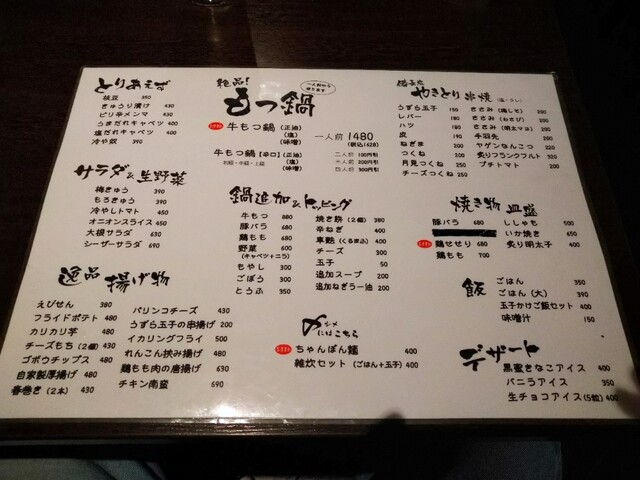 とりあえず
枝豆 350
きゅうり漬け 430
ピリ辛メンマ 430
うまだれキャベツ 400
塩だれキャベツ 400
冷や奴 390
サラダ&生野菜
梅きゅう 390
もろきゅう 390
冷やしトマト 450
オニオンスライス 450
大根サラダ 630
シーザーサラダ 690
逸品 揚げ物
えびせん 380
フライドポテト 480
カリカリ芋 480
チーズもち(2個) 400
ゴボウチップス 480
自家製厚揚げ 480
春巻き(2本) 430
パリンコチーズ 430
うずら玉子の串揚げ 200
イカリングフライ 500
れんこん挟み揚げ 480
鶏もも肉の唐揚げ 630
チキン南蛮 690
絶品!
もつ鍋
一人前から
牛もつ鍋 (正油)
(塩)
(味噌)
一人前 1480
(税込1628)
牛もつ鍋【辛口】(正油)
(塩)
(味噌)
二人前 100円引
三人前 200円引
四人前 300円引
鍋追加&トッピング
牛もつ 880
豚バラ 680
鶏もも 680
野菜 600
(キャベツ+ニラ)
もやし 300
ごぼう 300
とうふ 350
焼き餅(2個) 380
辛ねぎ 400
車麩(くるまふ) 400
チーズ 300
玉子 50
追加スープ 200
追加ねぎラー油 200
〆
シメ
にはこちら
ちゃんぽん麺 400
雑炊セット(ごはん+玉子) 400
備長炭
やきとり 串焼(塩・タレ)
うずら玉子 150
レバー 180
ハツ 180
皮 190
ねぎま 200
つくね 200
月見つくね 250
チーズつくね 250
ささみ(梅しそ) 200
ささみ(わさび) 200
ささみ(明太マヨ) 200
手羽先 200
ヤゲンなんこつ 200
炙りフランクフルト 320
プチトマト 200
焼き物 皿盛
豚バラ 680
鶏せせり 680
鶏もも 700
ししゃも 500
いか焼き 650
炙り明太子 400
飯
ごはん 350
ごはん(大) 390
玉子かけご飯セット 400
味噌汁 150
デザート
黒蜜きなこアイス 400
バニラアイス 350
生チョコアイス(5粒) 400